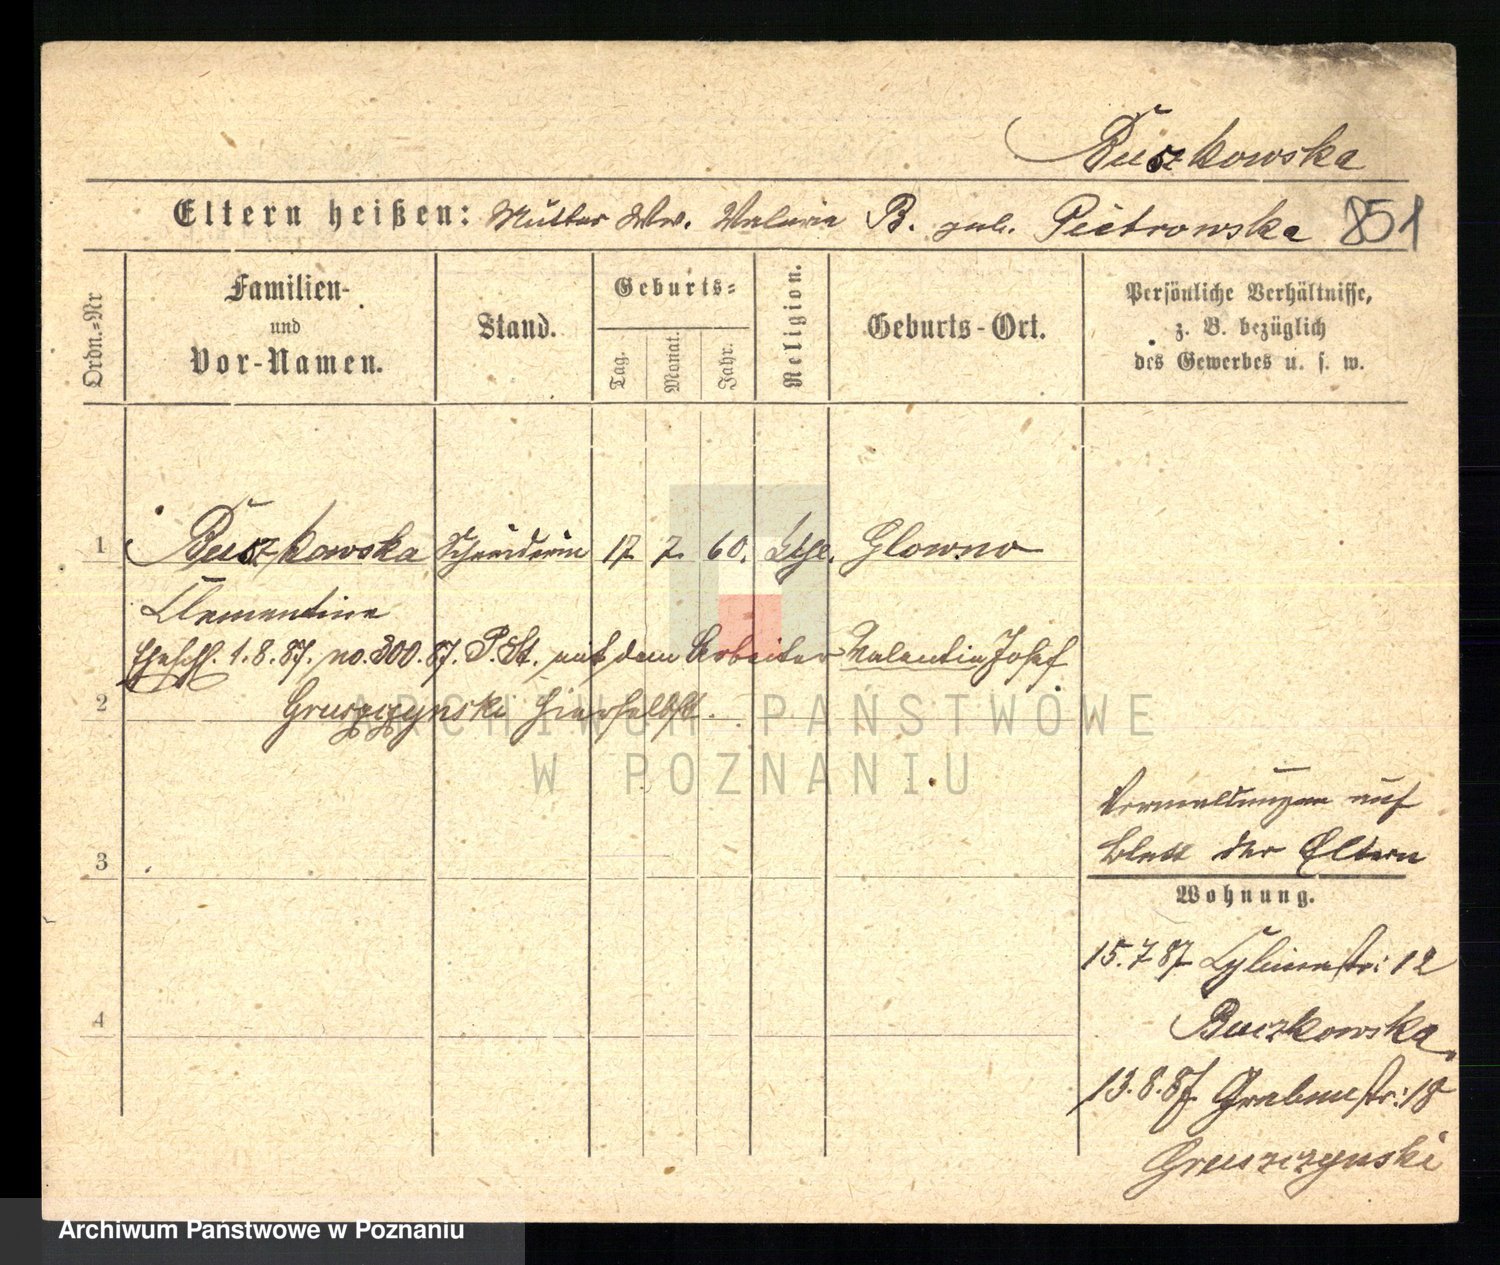 Buszkowska
Eltern heißen: Mutter Ww. Valeria B. geb. Pietrowska 851
Ordn.-Nr
Familien-
und
Vor-Namen.
Stand.
Geburts-
Tag.
Monat.
Jahr.
Religion.
Geburts-Ort.
Persönliche Verhältnisse,
z. B. bezüglich
des Gewerbes u. s. w.
1 Buszkowska Schneiderin 17 7 60. kthl. Glowno
Clementine
Ehesch. 1.8.87. no. 300.87. P. St. mit dem Arbeiter Valentin Josef
2 Gruszczynski hierselbst.
ARCHIWUM PAŃSTWOWE
W POZNANIU
Vermeldungen auf
3 Blatt der Eltern
Wohnung.
15.7 87 str: 12
4 Buszkowska
13.8.87. Grabenstr: 18
Gruszczynski
Archiwum Państwowe w Poznaniu